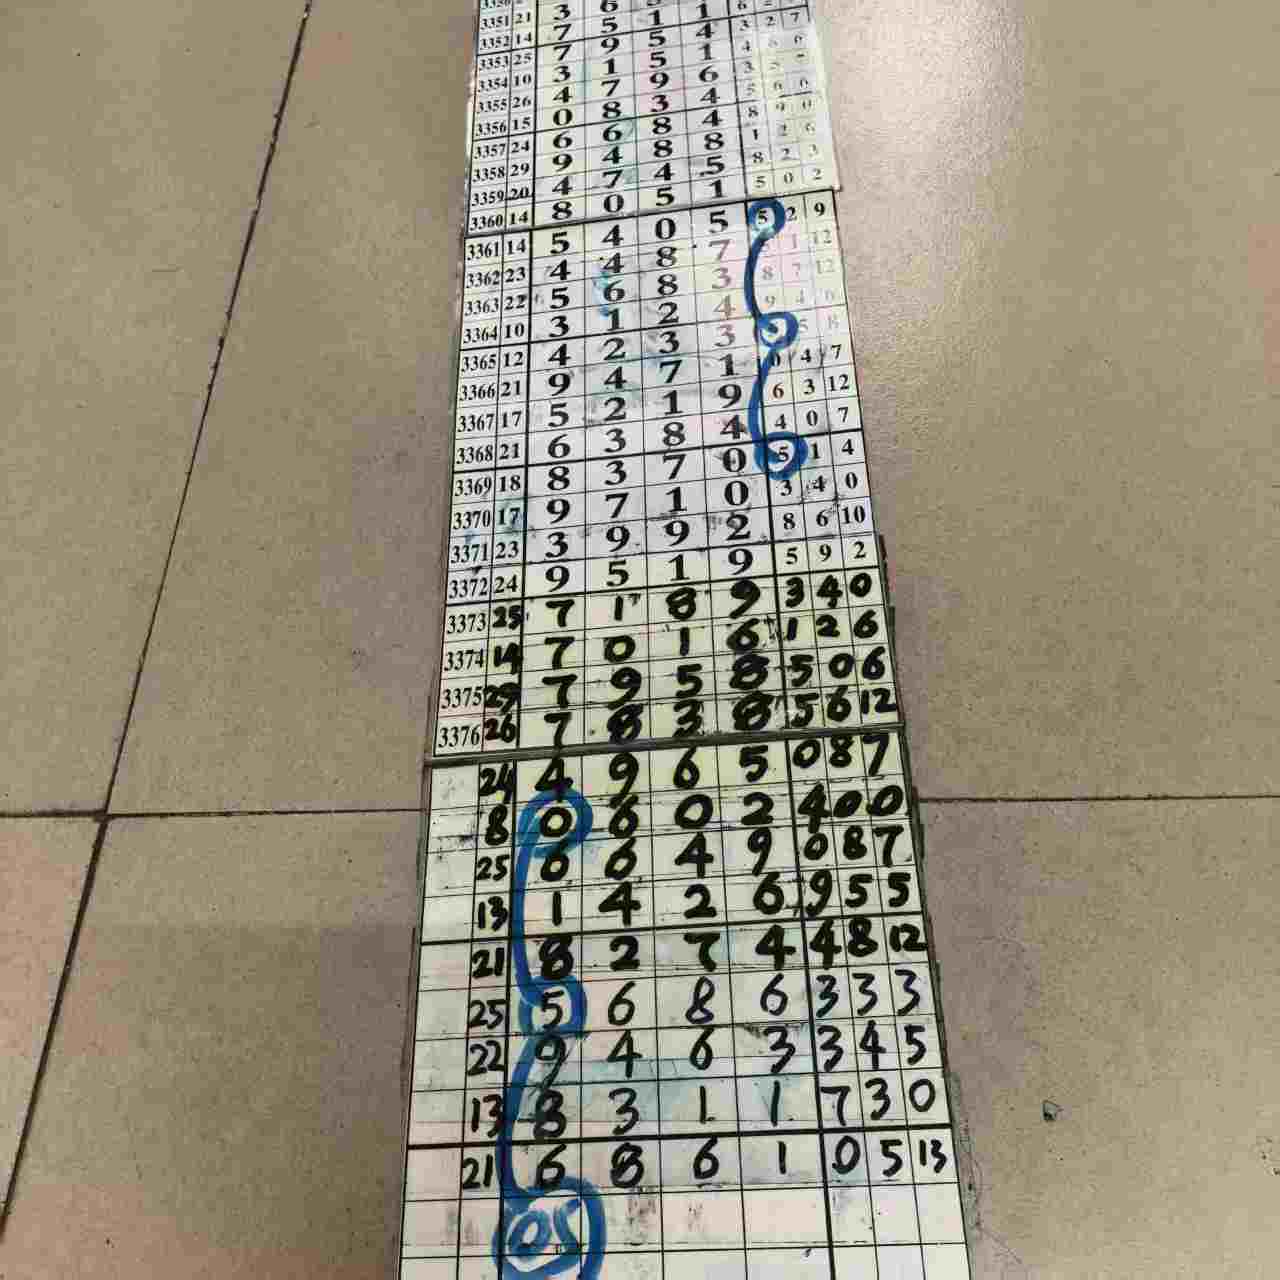 3351 21 3 6 5 1 1 6
3352 14 7 5 1 4 3 2 7
3353 25 7 9 5 4 4 6 6
3354 10 3 1 5 1 3 5
3355 26 4 7 9 6 5 6 0
3356 15 0 8 3 4 8 9 0
3357 24 6 6 8 4 1 2 6
3358 29 9 4 8 8 8 2 3
3359 20 4 7 4 5 5 0 2
3360 14 8 0 5 1
3361 14 5 4 0 5 5 2 9
3362 23 4 4 8 7 1 12
3363 22 5 6 8 3 8 7 12
3364 10 3 1 2 4 9 4 6
3365 12 4 2 3 3 5 8
3366 21 9 4 7 1 0 4 7
3367 17 5 2 1 9 6 3 12
3368 21 6 3 8 4 4 0 7
3369 18 8 3 7 0 5 1 4
3370 17 9 7 1 0 3 4 0
3371 23 3 9 9 2 8 6 10
3372 24 9 5 1 9 5 9 2
3373 25 7 1 8 9 3 4 0
3374 14 7 0 1 6 1 2 6
3375 29 7 9 5 8 5 0 6
3376 26 7 8 3 8 5 6 12
24 4 9 6 5 0 8 7
8 0 6 0 2 4 0 0
25 6 6 4 9 0 8 7
13 1 4 2 6 9 5 5
21 8 2 7 4 4 8 12
25 5 6 8 6 3 3 3
22 9 4 6 3 3 4 5
13 8 3 1 1 7 3 0
21 6 8 6 1 0 5 13
05